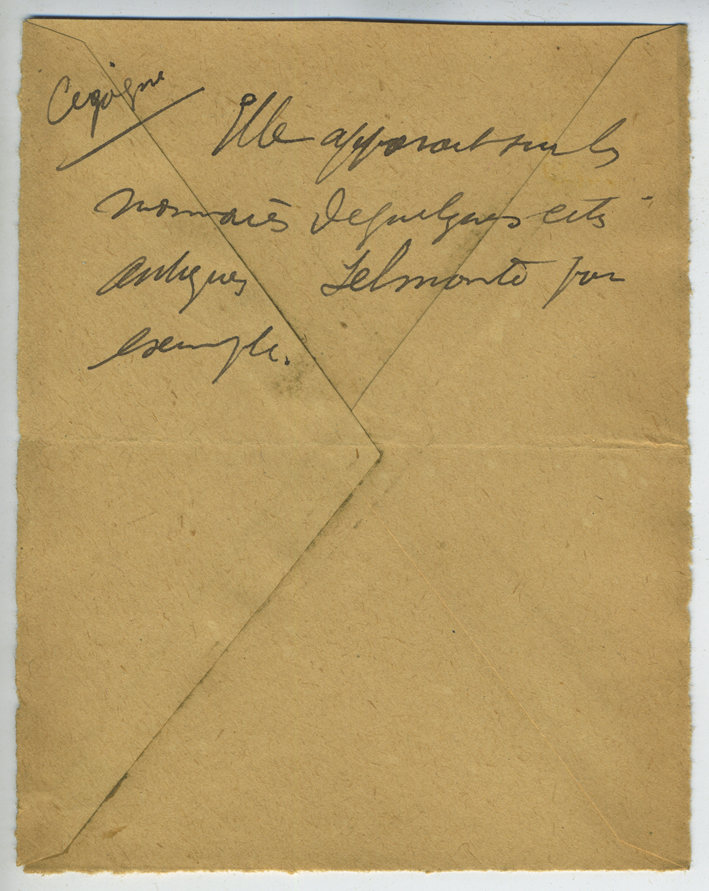 Cigogne
Elle apparait sur les
monnaies de quelques cités
antiques Selmonte par
exemple.